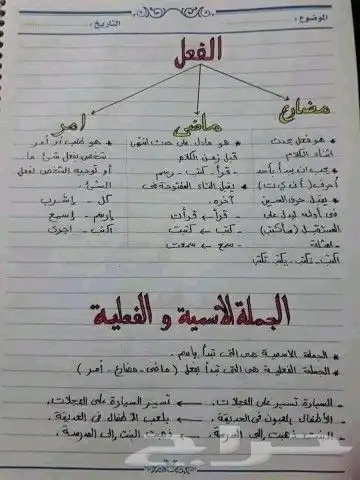 الموضوع:
التاريخ:
الفعل
مضارع
ماضى
امر
* هو فعل يحدث
اثناء الكلام
* يجب ان يبدأ بأحد
أحرف (أ ن ي ت)
* يقبل حرف السين
فى أوله ليدل على
المستقبل (سأكتب)
- أمثلة
اكتب - نكتب - يكتب - تكتب
* هو مادل على حدث انتهى
قبل زمن الكلام
- قرأ - كتب - رسم
* يقبل التاء المفتوحة فى
آخره.
- قرأ ← قرأت
- كتب ← كتبت
- سمع ← سمعت
* هو طلب أو أمر
شخص بفعل شئ ما
أو توجيه الشخص لفعل
الشئ.
كل - إشرب
إرسم - إسمع
اكتب - اجرى
الجملة الأسمية و الفعلية
* الجملة الاسمية هى التى تبدأ بأسم.
* الجملة الفعلية هى التى تبدأ بفعل (ماضى - مضارع - أمر)
- السيارة تسير على العجلات. ← تسير السيارة على العجلات.
- الأطفال يلعبون فى الحديقة. ← يلعب الأطفال فى الحديقة.
- البنت ذهبت إلى المدرسة. ← ذهبت البنت إلى المدرسة.
حراج